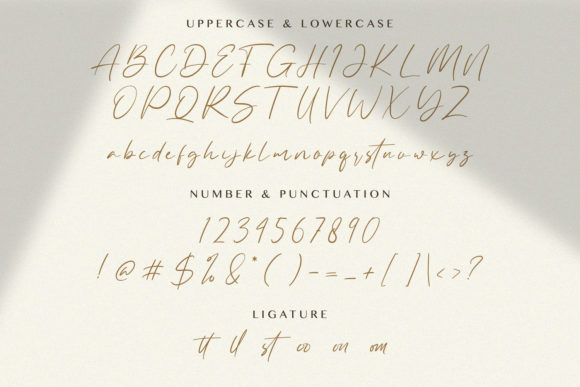 UPPERCASE & LOWERCASE
ABCDEFGHIJKLMN
OPQRSTUVWXYZ
abcdefghijklmnopqrstuvwxyz
NUMBER & PUNCTUATION
1234567890
! @ # $ % & * ( ) - = _ + [ ] \ < > ?
LIGATURE
tt ll st oo on om